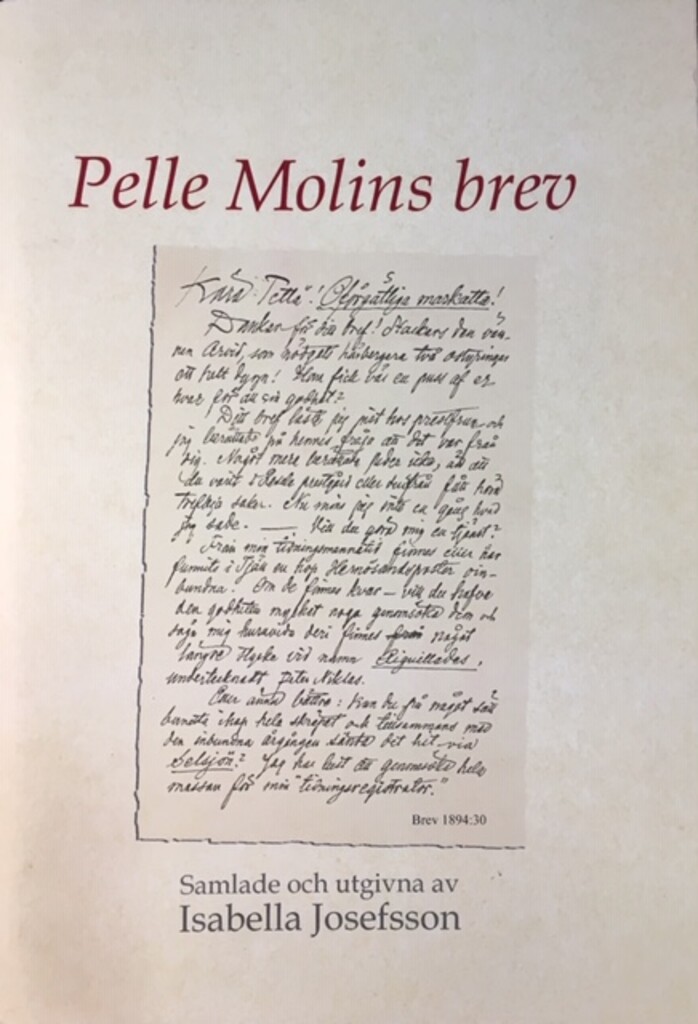 Pelle Molins brev
Kära Tetta! Oförgätliga markatta!
Dankar för din bref! Stackars den vän-
nen Arvid, som nödgats härbergera två
ett helt dygn! Hon fick väl en puss af er
hvar för du sin godhet?
Ditt bref läste jag just hos prestfrun och
jag berättade på hennes fråga att det var från
dig. Något mera berättade jag icke, än att
du varit i prestgård eller fått höra
saker. Nu mins jag inte en gång hvad
jag sade. — Vill du göra mig en tjänst?
Från min tidningsmannatid finnes eller har
funnits i en hop Hernösandsposten oin-
bundna. Om de finnes kvar — vill du hafva
den godheten mycket noga genomsöka dem och
säga mig huruvida deri finnes från något
längre stycke vid namn Aiguillades,
undertecknadt Niklas.
Eller ännu bättre: Kan du på något sätt
bunta ihop hela skräpet och tillsammans med
den inbundna årgången sända det hit via
Selsjön? Jag har lust att genomsöka hela
massan för min "tidningsregistrator."
Brev 1894:30
Samlade och utgivna av
Isabella Josefsson